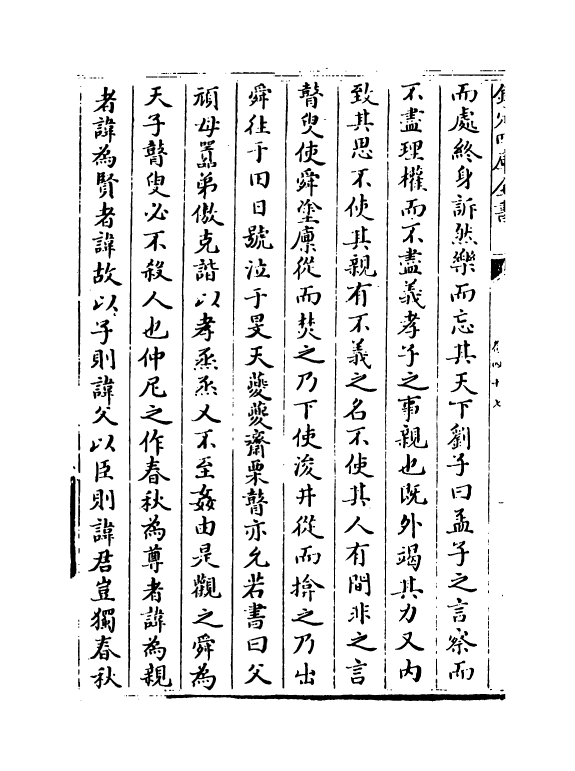 欽定四庫全書
卷四十七
而處終身訴然樂而忘其天下劉子曰孟子之言察而
不盡理權而不盡義孝子之事親也既外竭其力又内
致其思不使其親有不義之名不使其人有間非之言
瞽叟使舜塗廩從而焚之乃下使浚井從而揜之乃出
舜往于田日號泣于旻天夔夔齋栗瞽亦允若書曰父
頑母嚚弟傲克諧以孝烝烝乂不至姦由是觀之舜為
天子瞽叟必不殺人也仲尼之作春秋為尊者諱為親
者諱為賢者諱故以子則諱父以臣則諱君豈獨春秋